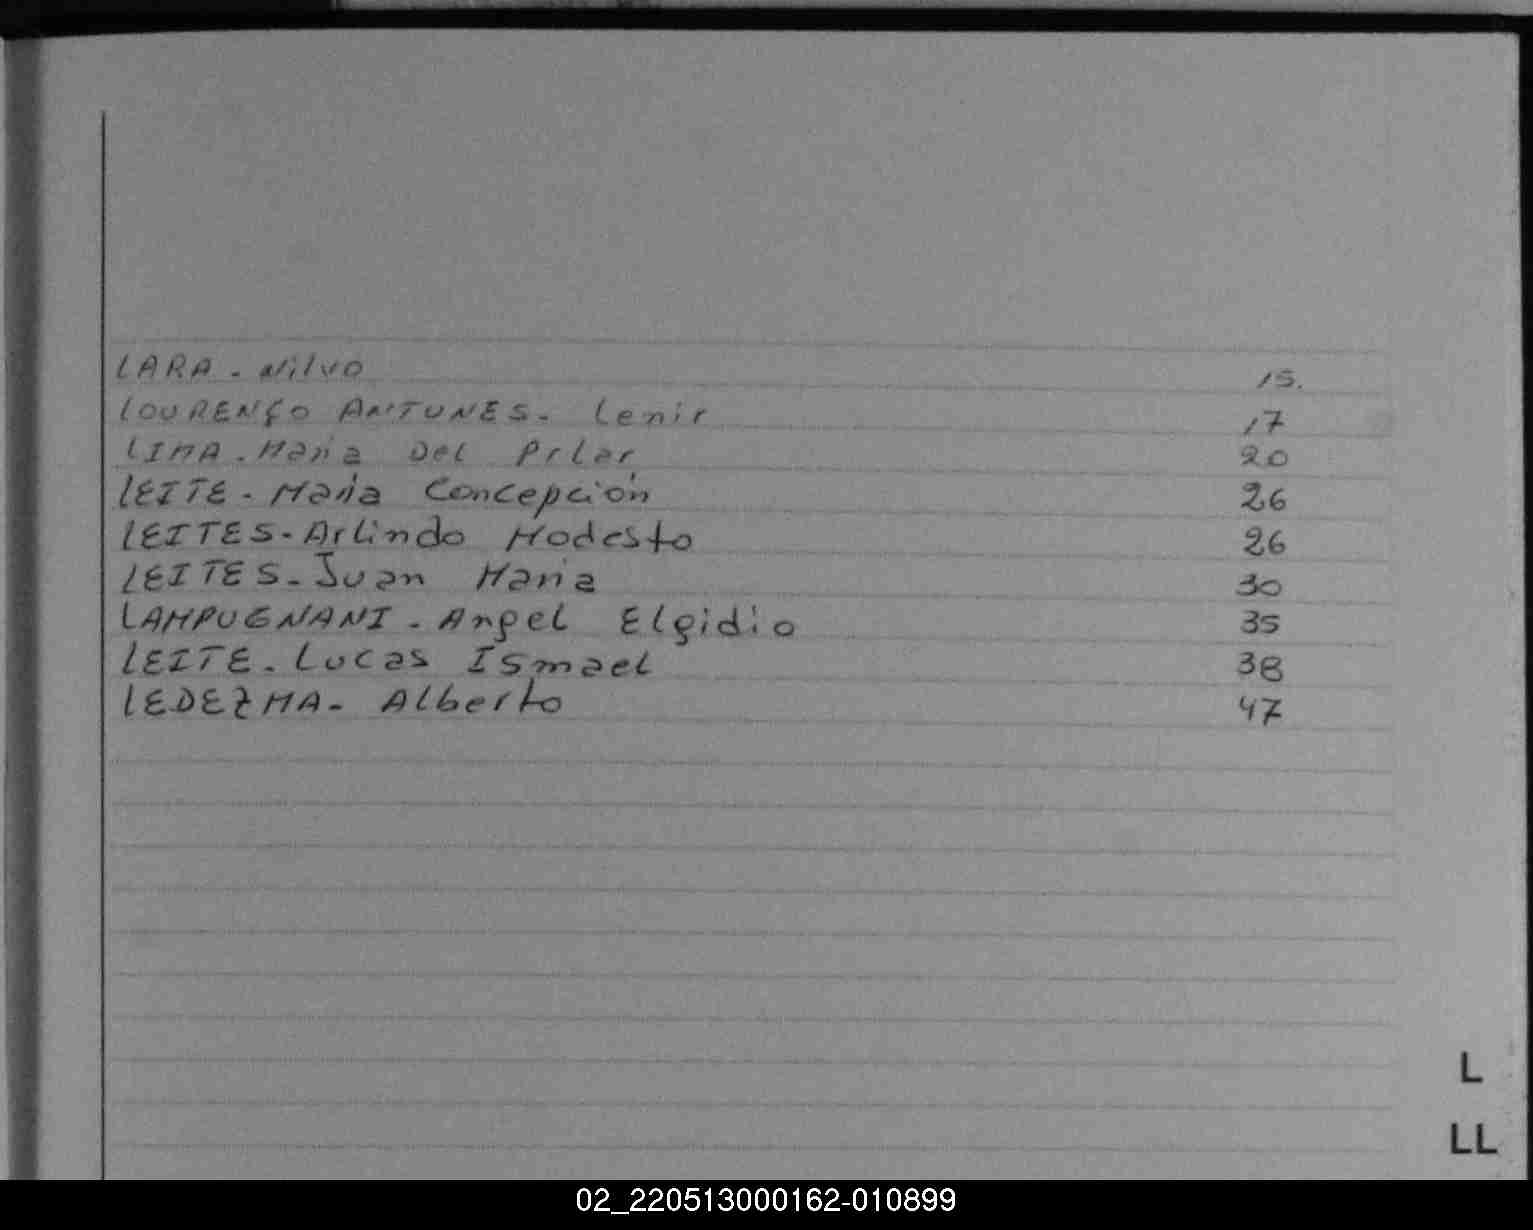 LARA - Nilvo 15.
LOURENÇO ANTUNES - Lenir 17
LIMA - Maria Del Pilar 20
LEITE - Maria Concepción 26
LEITES - Arlindo Modesto 26
LEITES - Juan Maria 30
LAMPUGNANI - Angel Elgidio 35
LEITE - Lucas Ismael 38
LEDEZMA - Alberto 47
L
LL
02_220513000162-010899